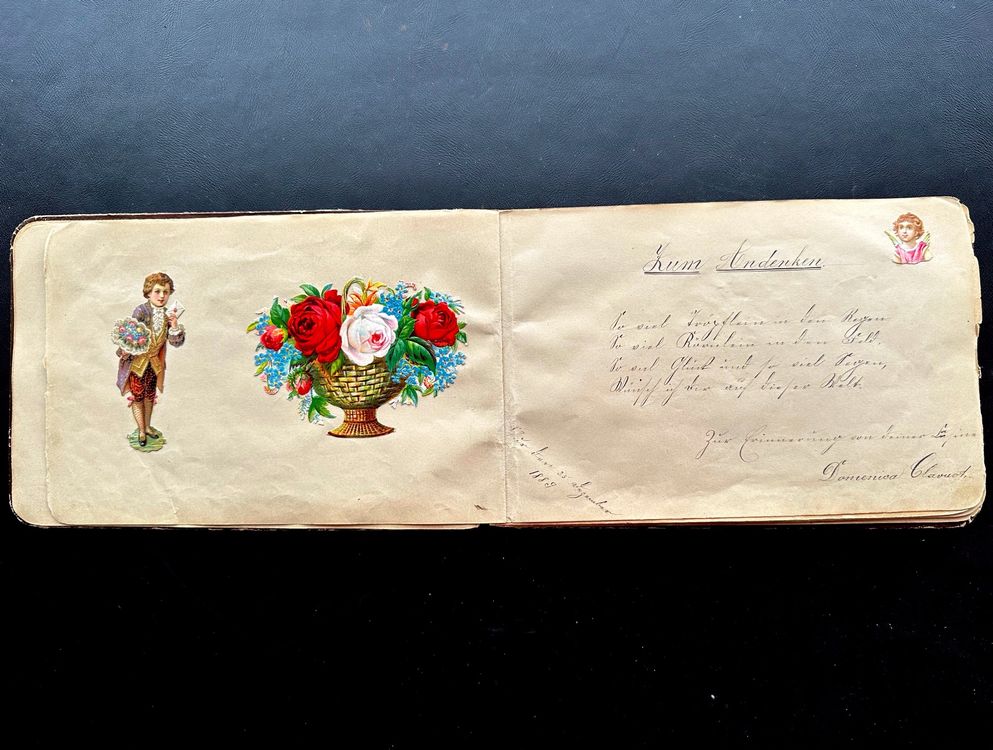 Zum Andenken.
So viel Tröpflein in dem Regen
So viel Körnlein in dem Feld,
So viel Glück und so viel Segen,
Wünsch ich dir auf dieser Welt.
Zur Erinnerung von deiner
Domenica Clavuot.
den 25 Dezember
1889